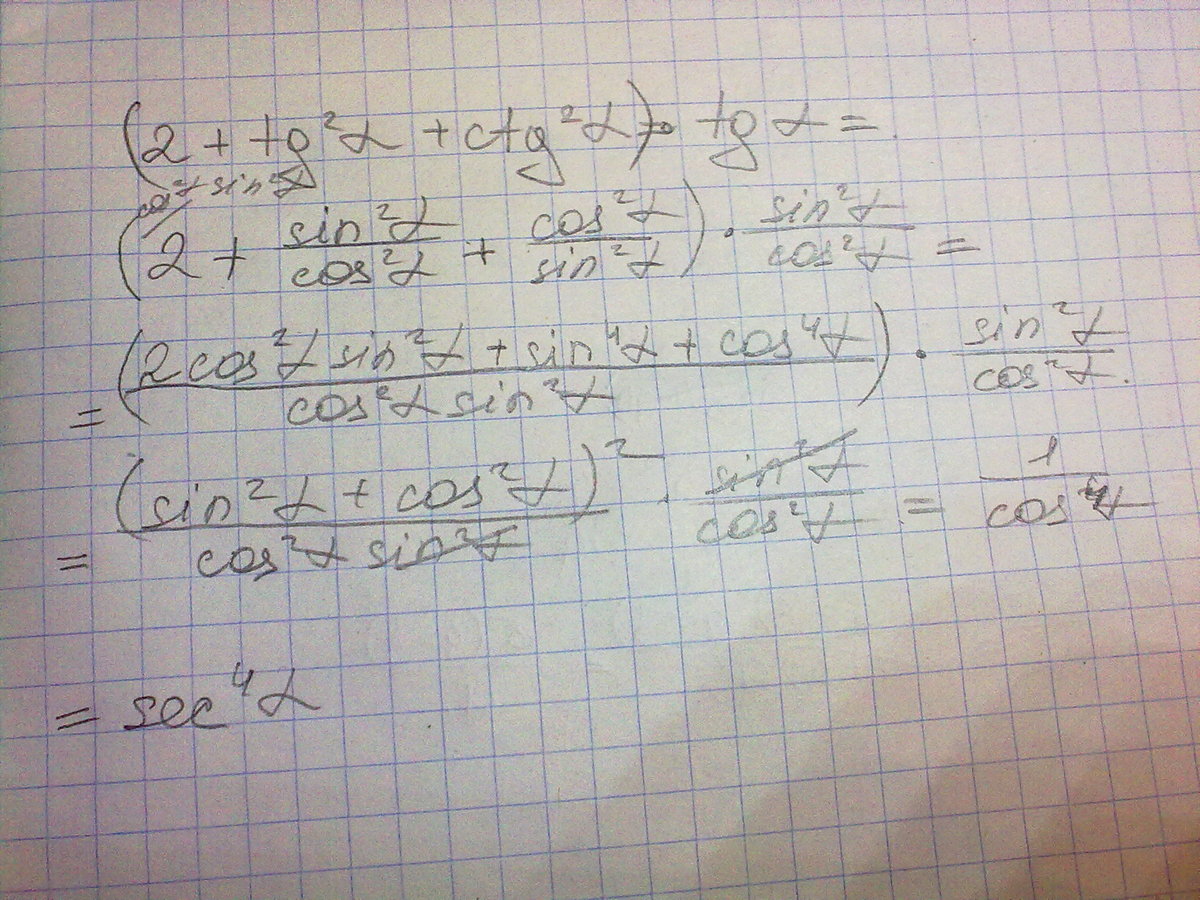 (2 + tg²α + ctg²α) · tg α =
cos²α sin²α
(2 + sin²α/cos²α + cos²α/sin²α) · sin²α/cos²α =
= (2cos²α sin²α + sin⁴α + cos⁴α)/(cos²α sin²α) · sin²α/cos²α
= (sin²α + cos²α)²/(cos²α sin²α) · sin²α/cos²α = 1/cos⁴α
= sec⁴α